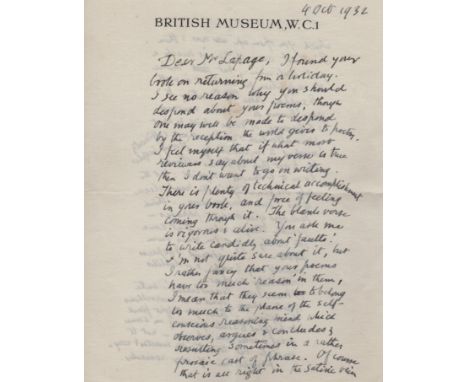 4 Oct 1932
BRITISH MUSEUM, W.C.1
Dear Mr Lepage, I found your
book on returning from a holiday.
I see no reason why you should
despond about your poems, though
one may well be made to despond
by the reception the world gives to poetry.
I feel myself that if what most
reviewers say about my verse is true
then I don't want to go on writing.
There is plenty of technical accomplishment
in your book, and force of feeling
coming through it. The blank verse
is vigorous & alive. You ask me
to write candidly about 'faults'.
I'm not quite sure about it, but
I rather fancy that your poems
have too much 'reason' in them,
I mean that they seem to belong
too much to the plane of the self-
conscious reasoning mind which
observes, argues & concludes;
resulting sometimes in a rather
prosaic cast of phrase. Of course
that is all right in the satiric vein